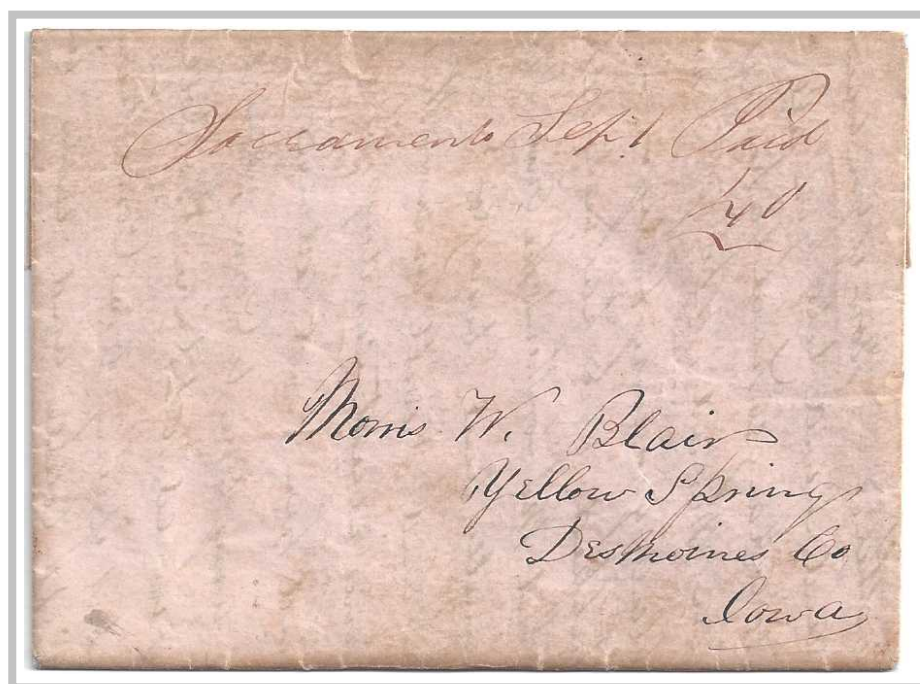 Sacramento Sep 1 Paid
40
Morris W. Blair
Yellow Spring
Desmoines Co
Iowa